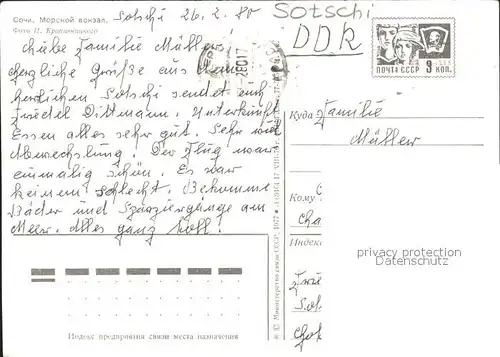 Сочи. Морской вокзал.
Фото И.
Sotschi 26.2.80
Sotschi
DDR
Liebe Familie Müller!
Herzliche Grüße aus dem
herrlichen Sotschi sendet euch
Dittmann. Unterkunft
Essen alles sehr gut. Sehr viel
Abwechslung. Der Flug war
einmalig schön. Es war
keinem schlecht. Bekomme
Bäder und Spaziergänge am
Meer. Alles ganz toll!
ПОЧТА СССР 3 КОП.
Куда Familie
Müller
Кому
Индекс
privacy protection
Datenschutz
© Министерство связи СССР, 1977
Индекс предприятия связи места назначения